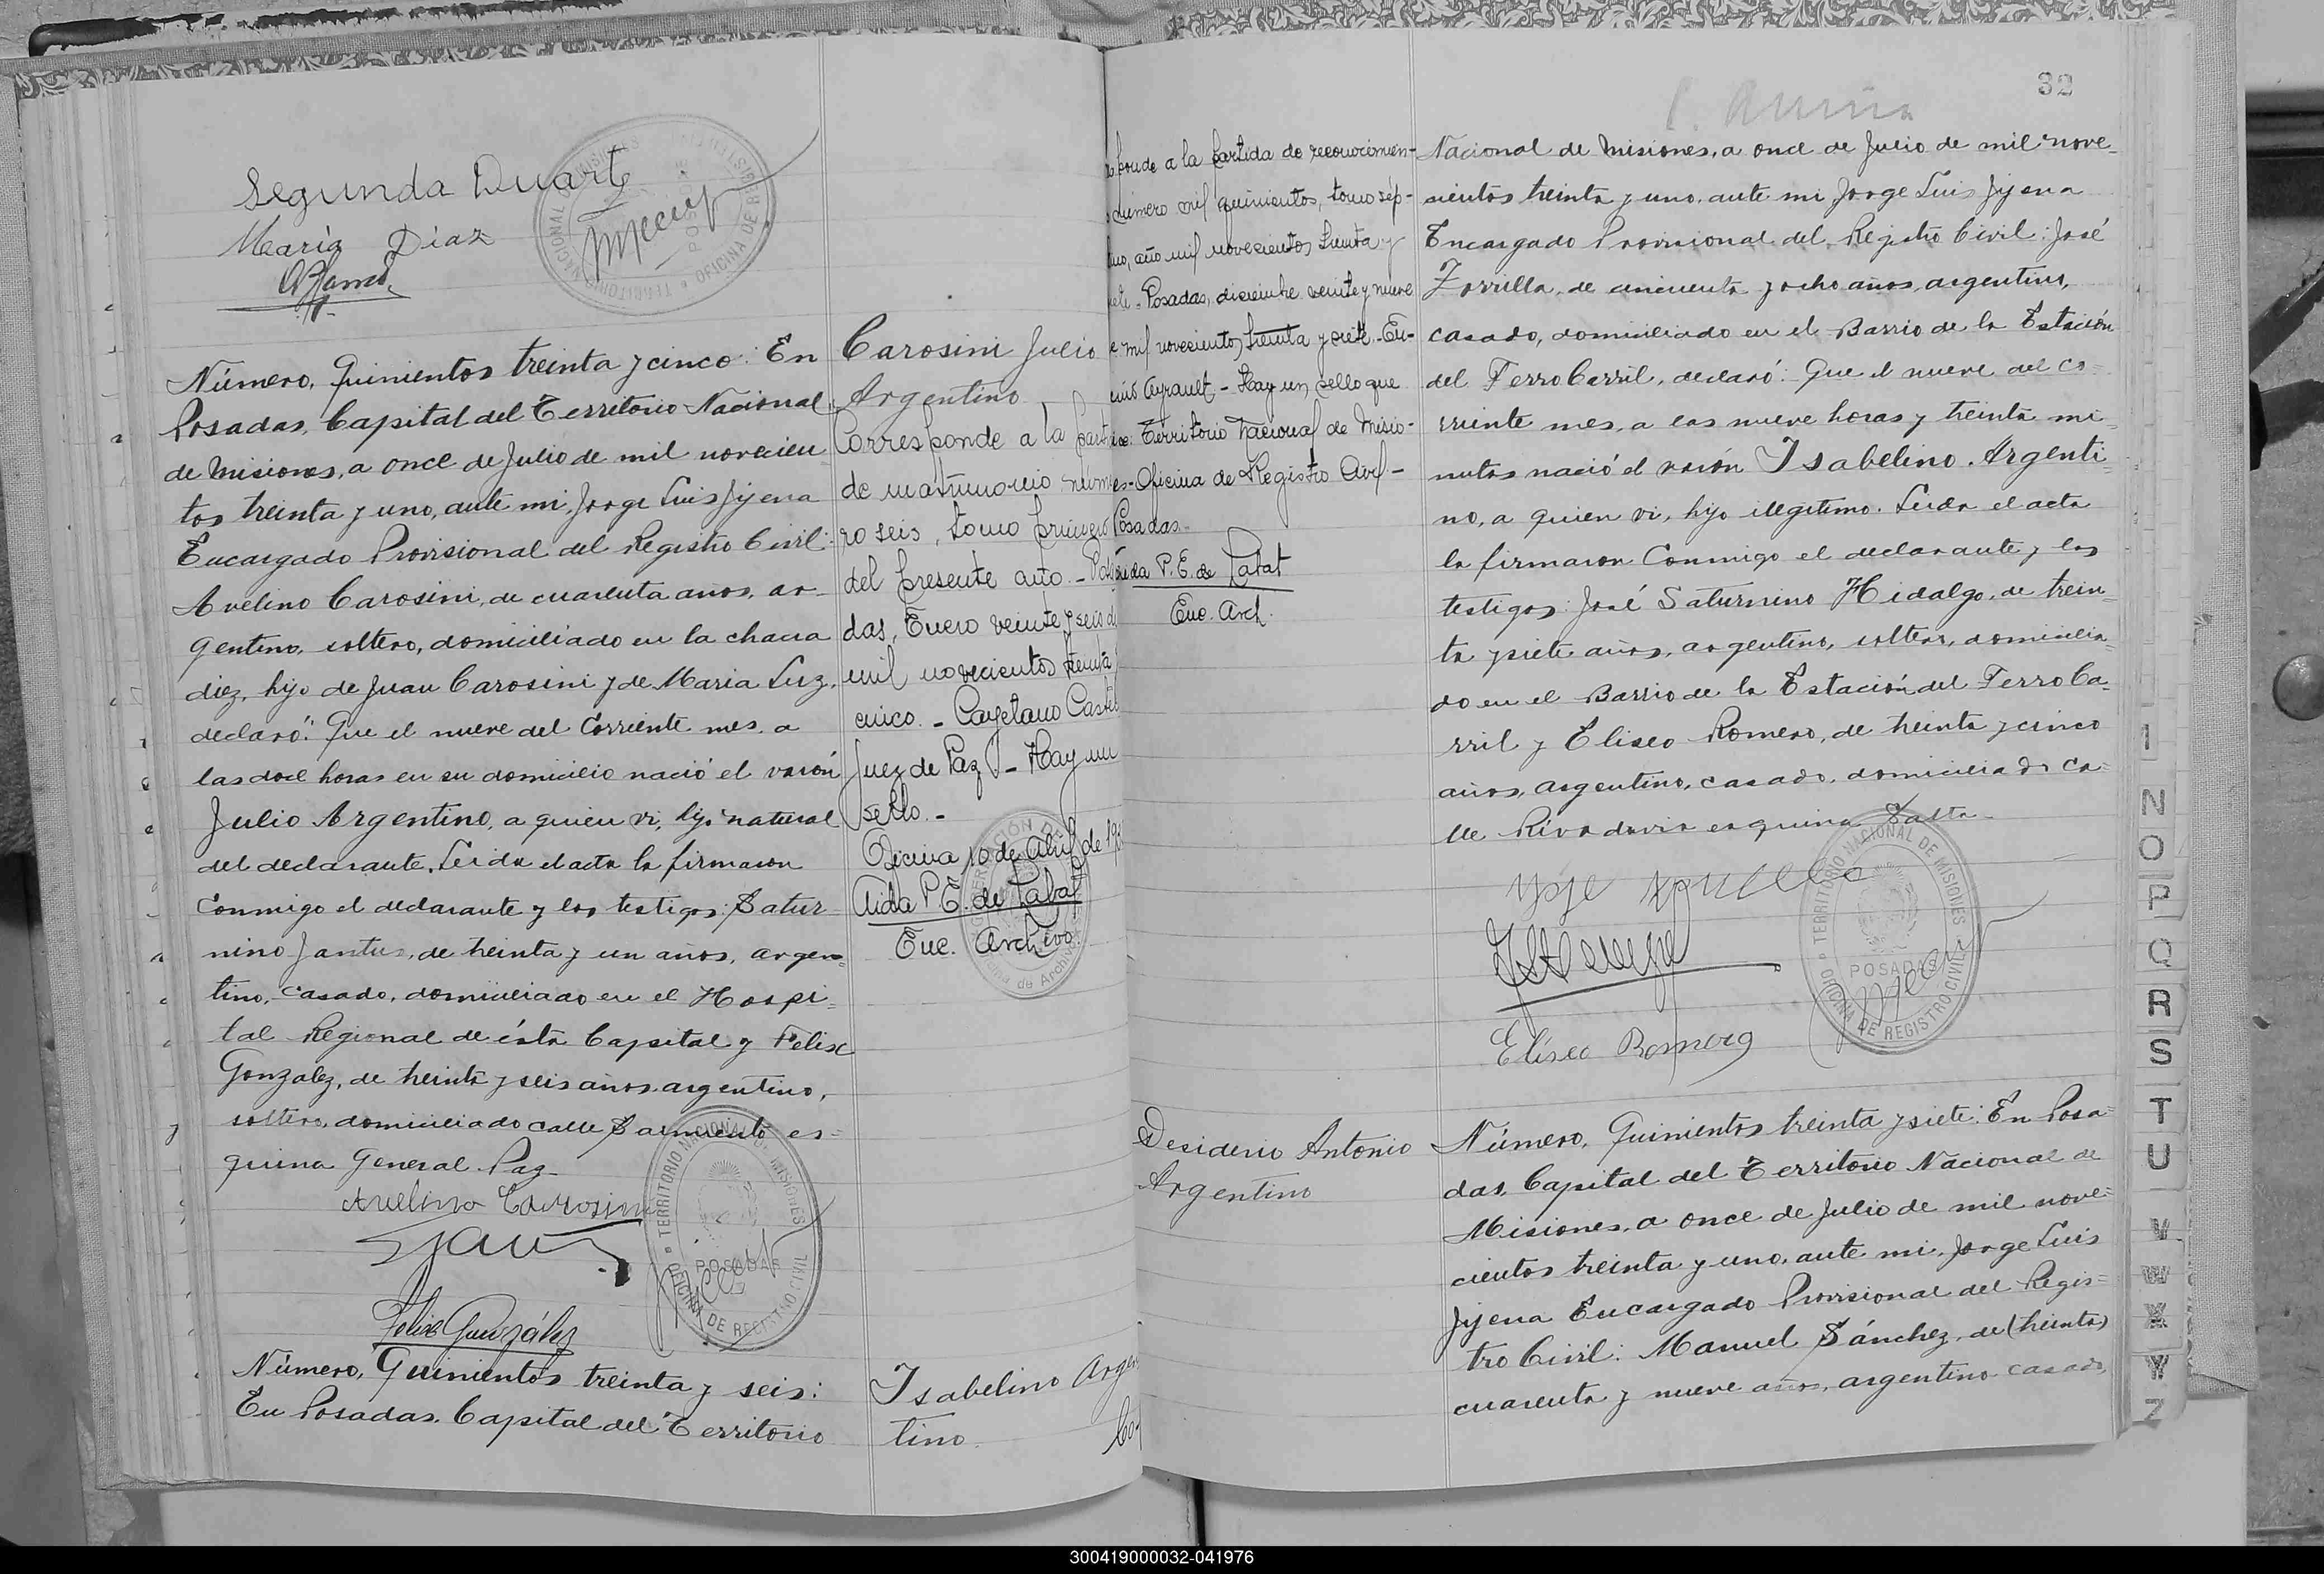 Segunda Duarte
María Diaz
Número, Quinientos treinta y cinco: En
Posadas, Capital del Territorio Nacional
de Misiones, a once de Julio de mil novecien
tos treinta y uno, ante mi, Jorge Luis Jijena
Encargado Provisional del Registro Civil:
Avelino Carosini, de cuarenta años, ar-
gentino, soltero, domiciliado en la chacra
diez, hijo de Juan Carosini y de Maria Luz,
declaró: Que el nueve del corriente mes, a
las doce horas en su domicilio nació el varón
Julio Argentino, a quien vi, hijo natural
del declarante. Leida el acta la firmaron
conmigo el declarante y los testigos: Satur-
nino Jantus, de treinta y un años, argen-
tino, casado, domiciliado en el Hospi-
tal Regional de ésta Capital y Felix
Gonzalez, de treinta y seis años, argentino,
soltero, domiciliado calle Sarmiento es-
quina General Paz
Avelino Carosini
Felix González
Número, Quinientos treinta y seis:
En Posadas, Capital del Territorio
Carosini Julio
Argentino
Corresponde a la part
de matrimonio núme
ro seis, tomo primero
del presente año. - Posa
das, Enero veinte y seis de
mil novecientos treinta y
cinco. - Cayetano Castel
Juez de Paz - Hay un
sello. -
Oficina, 10 de Abril de 19
Aida P. E. de Labat
Enc. Archivo
Isabelino Argen
tino.
Co
32
ponde a la partida de reconocimien-
número mil quinientos, tomo sép-
mo, año mil novecientos treinta y
siete - Posadas, diciembre veinte y nueve
de mil novecientos treinta y siete. - Eu-
Ayrault - Hay un sello que
dice: Territorio Nacional de Misio-
nes - Oficina de Registro Civil -
Posadas.
Aida P. E. de Labat
Enc. Arch.
Desiderio Antonio
Argentino
Nacional de Misiones, a once de Julio de mil nove-
cientos treinta y uno, ante mi Jorge Luis Jijena
Encargado Provisional del Registro Civil: José
Zorrilla, de cincuenta y ocho años, argentino,
casado, domiciliado en el Barrio de la Estación
del Ferro Carril, declaró: Que el nueve del co-
rriente mes, a las nueve horas y treinta mi-
nutos nació el varón Isabelino Argenti-
no, a quien vi, hijo ilegitimo. Leida el acta
la firmaron conmigo el declarante y los
testigos: José Saturnino Hidalgo, de trein-
ta y siete años, argentino, soltero, domicilia-
do en el Barrio de la Estación del Ferro Ca-
rril y Eliseo Romero, de treinta y cinco
años, argentino, casado, domiciliado ca-
lle Rivadavia esquina Salta
Eliseo Romero
Número, Quinientos treinta y siete: En Posa-
das, Capital del Territorio Nacional de
Misiones, a once de Julio de mil nove-
cientos treinta y uno, ante mi, Jorge Luis
Jijena Encargado Provisional del Regis-
tro Civil: Manuel Sánchez, de (treinta)
cuarenta y nueve años, argentino casado,
TERRITORIO NACIONAL DE MISIONES
OFICINA DE REGISTRO CIVIL
POSADAS
I
N
O
P
Q
R
S
T
U
V
W
X
Y
Z
300419000032-041976